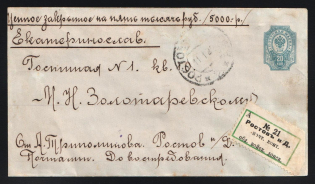 Ценное закрытое на пять тысяч руб. /5000 р./
Екатеринослав.
Гостиная №1. кв.
М. Н. Золотаревскому
От А. Триполитова. Ростов н/Д.
Почтамт. До востребования.
№ 21
Ростовъ н Д.